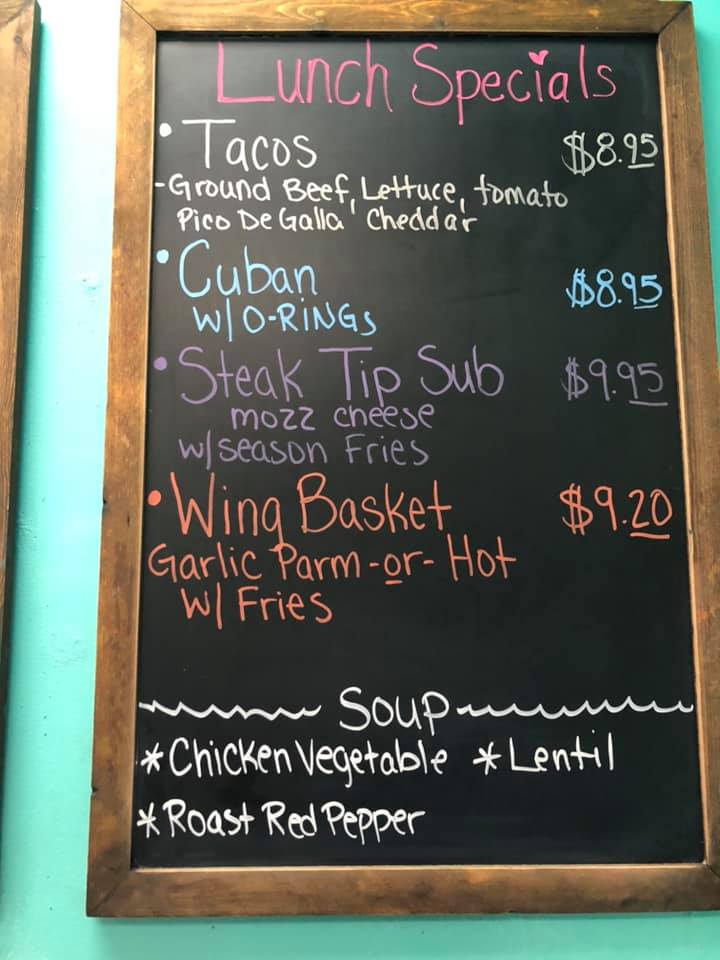 Lunch Specials
• Tacos $8.95
-Ground Beef, Lettuce, tomato
Pico De Galla' Cheddar
• Cuban $8.95
w/ O-RiNGs
• Steak Tip Sub $9.95
mozz cheese
w/ season Fries
• Wing Basket $9.20
Garlic Parm -or- Hot
w/ Fries
Soup
* Chicken Vegetable * Lentil
* Roast Red Pepper